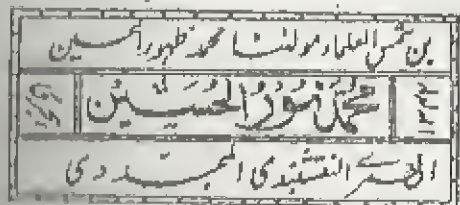 بن شمس العلماء مولٰنا محمد ظہور الحسین
محمد نور الحسین
النقشبندی المجددی